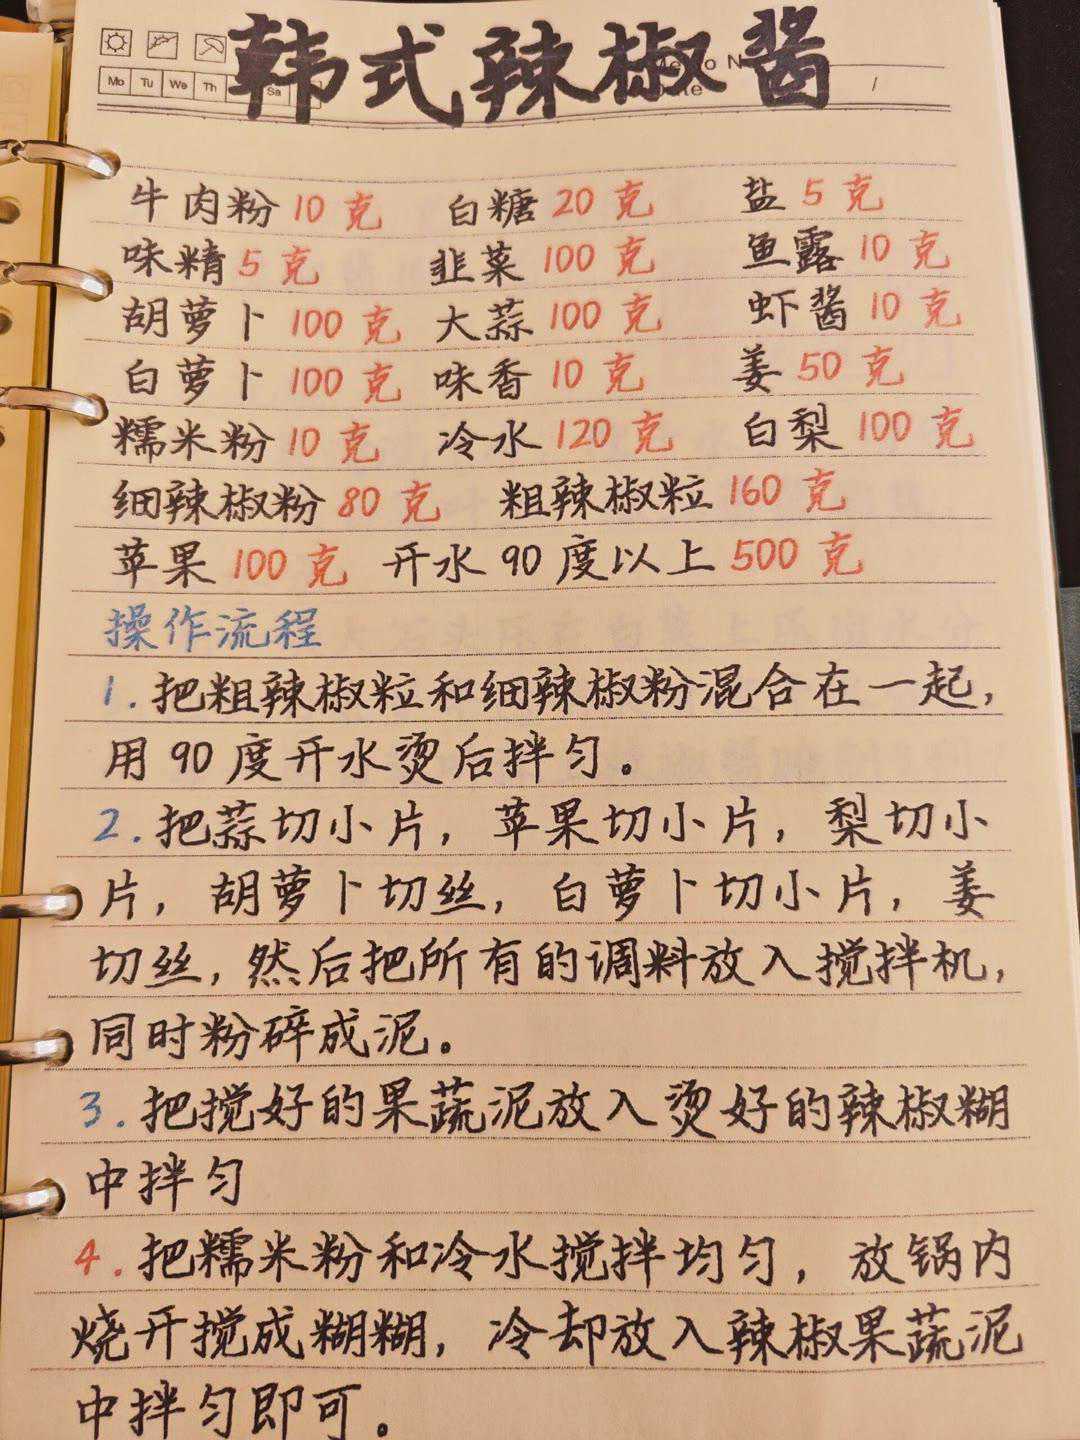 韩式辣椒酱
Mo Tu We Th Sa
牛肉粉 10 克 白糖 20 克 盐 5 克
味精 5 克 韭菜 100 克 鱼露 10 克
胡萝卜 100 克 大蒜 100 克 虾酱 10 克
白萝卜 100 克 味香 10 克 姜 50 克
糯米粉 10 克 冷水 120 克 白梨 100 克
细辣椒粉 80 克 粗辣椒粒 160 克
苹果 100 克 开水 90 度以上 500 克
操作流程
1. 把粗辣椒粒和细辣椒粉混合在一起,
用 90 度开水烫后拌匀。
2. 把蒜切小片, 苹果切小片, 梨切小
片, 胡萝卜切丝, 白萝卜切小片, 姜
切丝, 然后把所有的调料放入搅拌机,
同时粉碎成泥。
3. 把搅好的果蔬泥放入烫好的辣椒糊
中拌匀
4. 把糯米粉和冷水搅拌均匀, 放锅内
烧开搅成糊糊, 冷却放入辣椒果蔬泥
中拌匀即可。